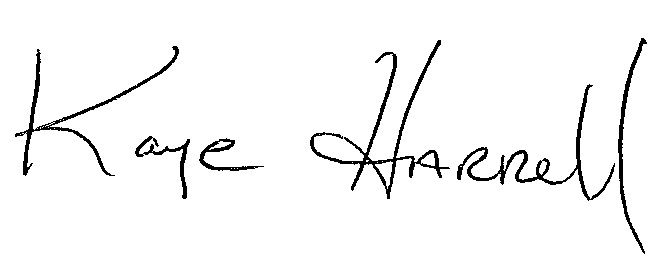 Kaye Harrell